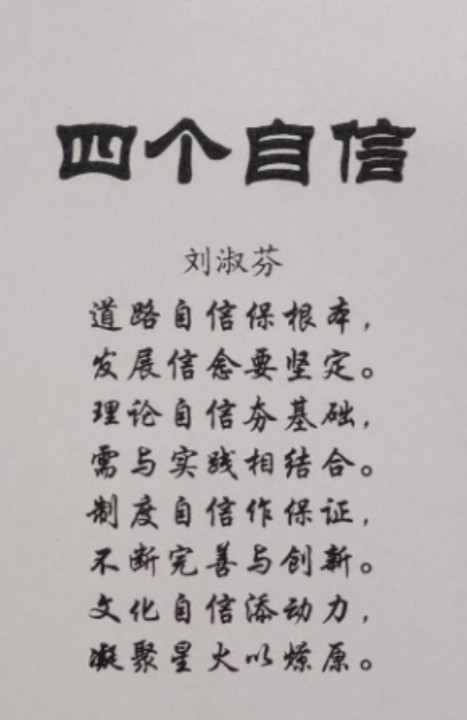 四个自信
刘淑芬
道路自信保根本，
发展信念要坚定。
理论自信夯基础，
需与实践相结合。
制度自信作保证，
不断完善与创新。
文化自信添动力，
凝聚星火以燎原。